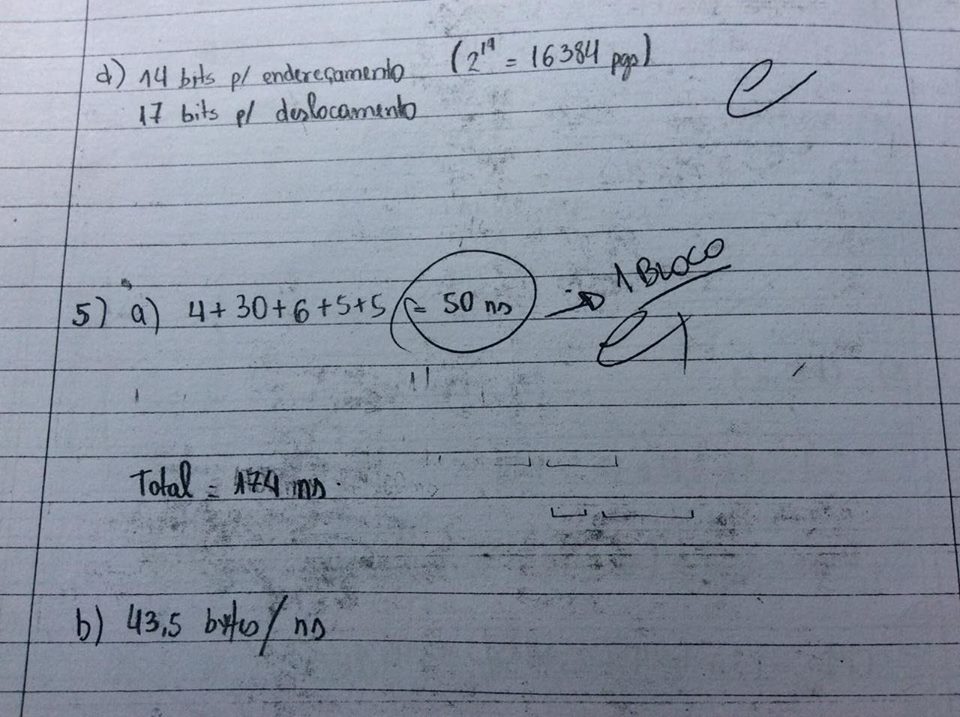 d) 14 bits p/ endereçamento (2^14 = 16384 pgs)
17 bits p/ deslocamento
5) a) 4+30+6+5+5 = 50 ns → 1 BLOCO
Total = 174 ns.
b) 43,5 bytes/ns